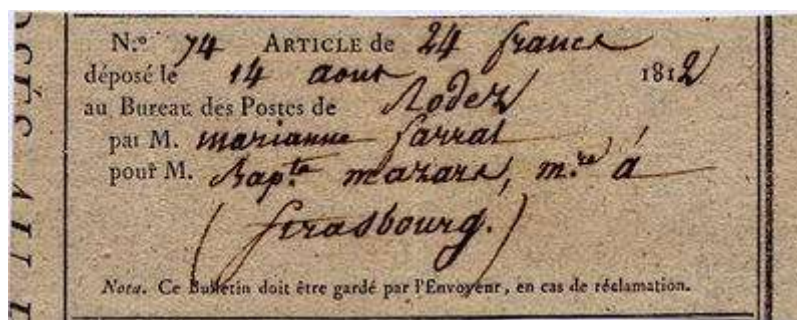 N.º 74 ARTICLE de 24 francs
déposé le 14 aout 1812
au Bureau des Postes de Rodez
par M. marianne farral
pour M. Bap.te mazars, m.re à
(Strasbourg.)
Nota. Ce Bulletin doit être gardé par l'Envoyeur, en cas de réclamation.